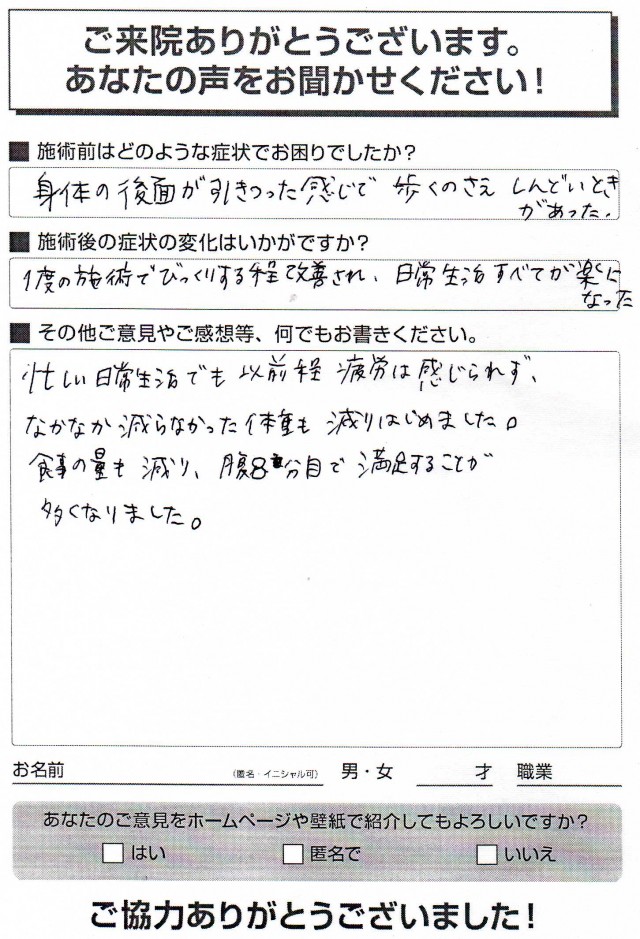 ご来院ありがとうございます。
あなたの声をお聞かせください!
■ 施術前はどのような症状でお困りでしたか?
身体の後面が引きつった感じで 歩くのさえ しんどいとき
があった.
■ 施術後の症状の変化はいかがですか?
1度の施術でびっくりする程改善され、日常生活すべてが楽に
なった
■ その他ご意見やご感想等、何でもお書きください。
忙しい日常生活でも 以前程 疲労は感じられず、
なかなか減らなかった体重も 減りはじめました。
食事の量も 減り、腹8分目で満足することが
多くなりました。
お名前 (匿名・イニシャル可) 男・女 才 職業
あなたのご意見をホームページや壁紙で紹介してもよろしいですか?
□ はい □ 匿名で □ いいえ
ご協力ありがとうございました!